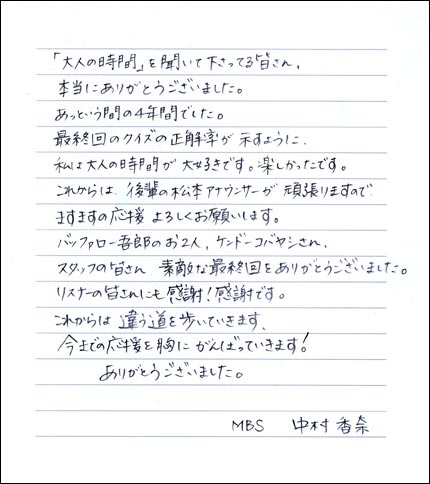 「大人の時間」を聞いて下さってる皆さん、
本当にありがとうございました。
あっという間の4年間でした。
最終回のクイズの正解率が 示すように、
私は大人の時間が 大好きです。楽しかったです。
これからは 後輩の松本アナウンサーが 頑張りますので
ますますの応援 よろしくお願いします。
バッファロー吾郎のお2人、ケンドーコバヤシさん、
スタッフの皆さん 素敵な最終回をありがとうございました。
リスナーの皆さんにも感謝!感謝です。
これからは 違う道を歩いていきます、
今までの応援を胸に がんばっていきます!
ありがとうございました。
MBS 中村 香奈